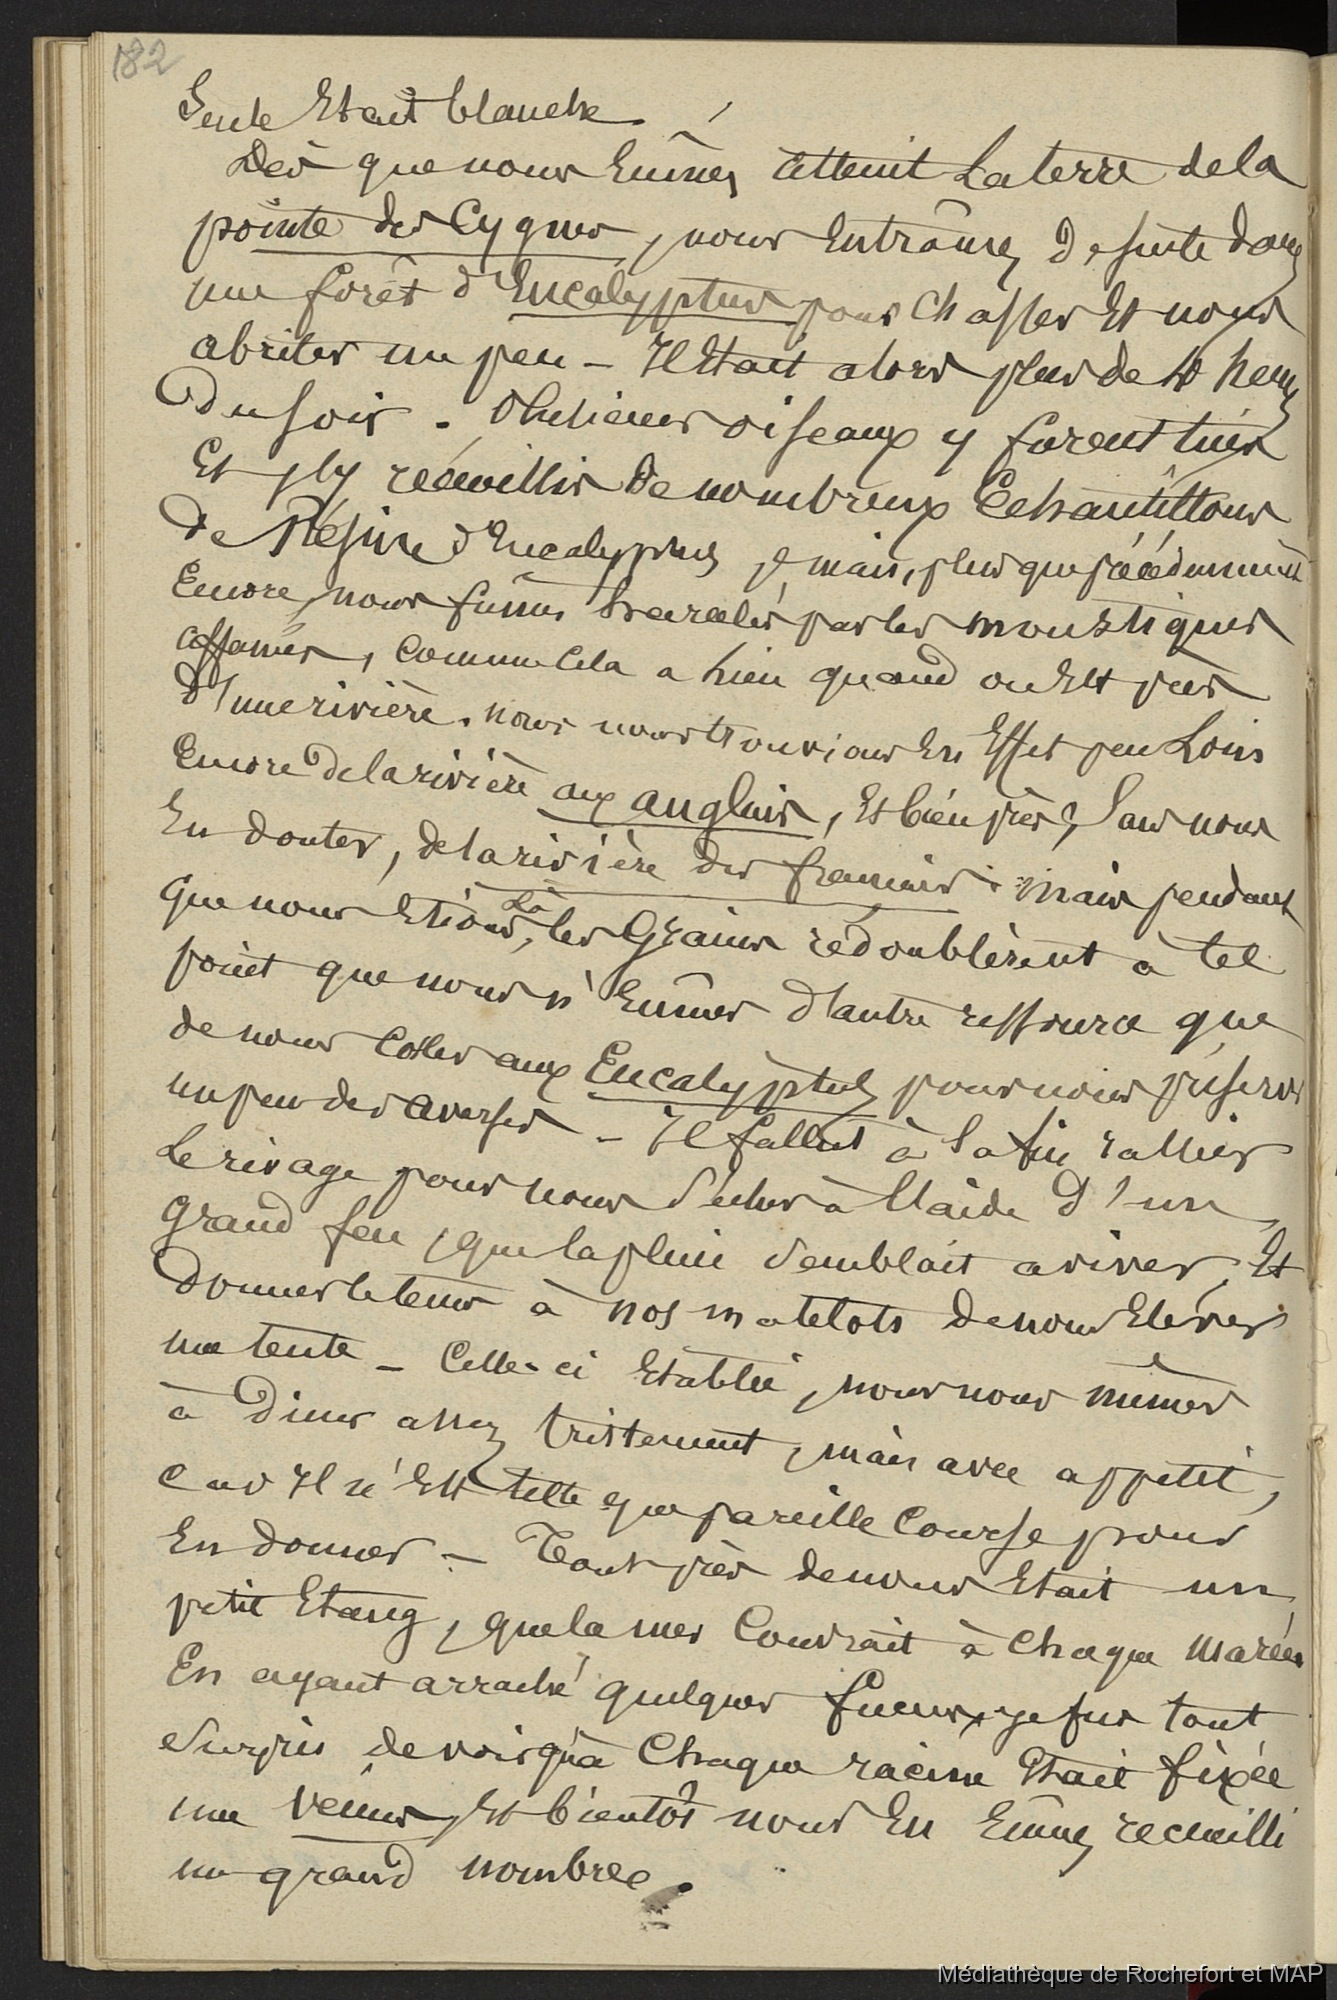 182
Seule Etait blanche.
Dès que nous Eûmes atteint La terre de la
pointe des Cygnes, nous Entrâmes De suite dans
une forêt d'Eucalyptus pour chasser Et nous
abriter un peu — Il Etait alors plus de 10 heures
Du soir. Plusieurs oiseaux y furent tués
Et j'y recueillis De nombreux Echantillons
de Résine d'Eucalyptus, mais, plus que précédemment
Encore, nous fûmes harcelés par les moustiques
affamés, comme cela a lieu quand on Est près
d'une rivière. nous nous trouvions En Effet peu Loin
Encore de la rivière aux anglais, Et bien près, Sans nous
En douter, de la rivière des français. mais pendant
que nous Etions Là, les Grains redoublèrent à tel
point que nous n'Eûmes d'autre ressource que
de nous coller aux Eucalyptus pour nous préserver
un peu des averses — Il fallut à la fin rallier
Le rivage pour nous sécher à l'aide d'un
grand feu, que la pluie semblait aviver, Et
Donner le tems à nos matelots de nous Elever
une tente — Celle-ci Etablie, nous nous mîmes
à Diner assez tristement, mais avec appétit,
car Il n'Est telle que pareille Course pour
En donner — Tout près de nous Etait un
petit Etang, que la mer Couvrait à chaque marée.
En ayant arraché quelques fucus, je fus tout
surpris de voir qu'à Chaque racine Etait fixée
une vénus, Et bientôt nous En Eûmes recueilli
un grand nombre.
Médiathèque de Rochefort et MAP